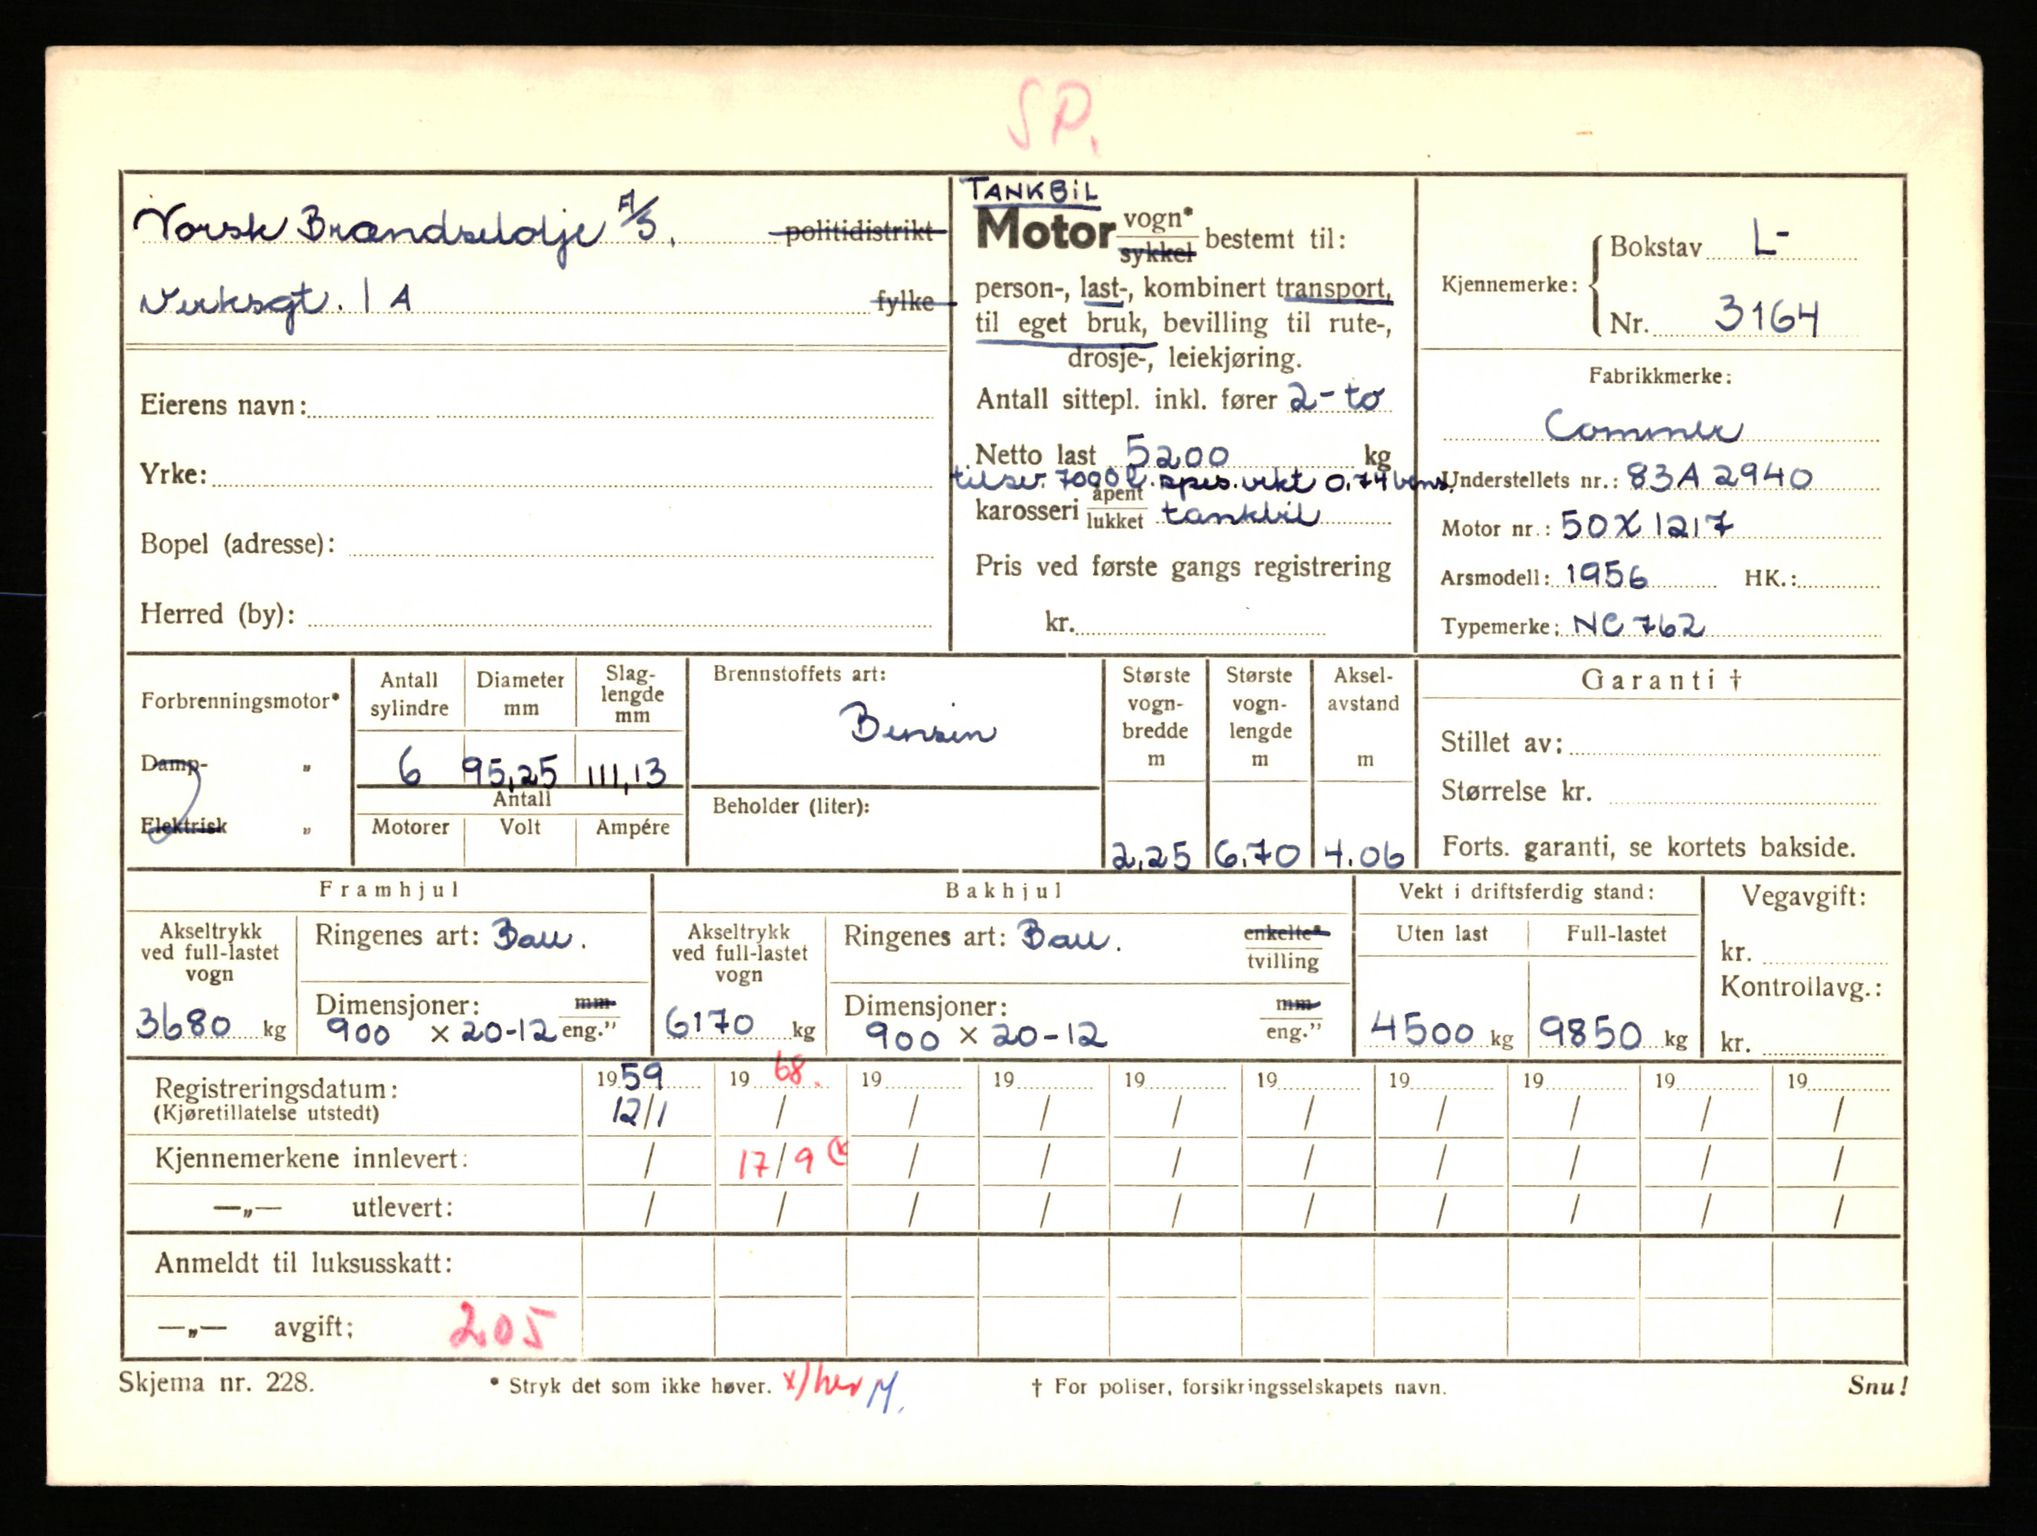 SP.
Norsk Brændselolje A/S, politidistrikt
Verksgt. 1 A fylke
Eierens navn:
Yrke:
Bopel (adresse):
Herred (by):
TANKBIL
Motor vogn* sykkel bestemt til:
person-, last-, kombinert transport,
til eget bruk, bevilling til rute-,
drosje-, leiekjøring.
Antall sittepl. inkl. fører 2 - to
Netto last 5200 kg
tilsv. 7000 l. spes. vekt 0,74 bens.
karosseri åpent lukket tankbil
Pris ved første gangs registrering
kr.
Kjennemerke: Bokstav L-
Nr. 3164
Fabrikkmerke:
Commer
Understellets nr.: 83A 2940
Motor nr.: 50X1217
Årsmodell: 1956 HK.:
Typemerke: NC 762
Forbrenningsmotor*
Damp- "
Elektrisk "
Antall sylindre
Diameter mm
Slag-lengde mm
6 95,25 111,13
Antall
Motorer Volt Ampére
Brennstoffets art:
Bensin
Beholder (liter):
Største vogn-bredde m
Største vogn-lengde m
Aksel-avstand m
2,25 6,70 4.06
Garanti †
Stillet av:
Størrelse kr.
Forts. garanti, se kortets bakside.
Framhjul
Akseltrykk ved full-lastet vogn
3680 kg
Ringenes art: Ball.
Dimensjoner: mm
900 x 20-12 eng."
Bakhjul
Akseltrykk ved full-lastet vogn
6170 kg
Ringenes art: Ball. enkelte* tvilling
Dimensjoner: mm
900 x 20-12 eng."
Vekt i driftsferdig stand:
Uten last Full-lastet
4500 kg 9850 kg
Vegavgift:
kr.
Kontrollavg.:
kr.
Registreringsdatum: 1959 1968. 19 19 19 19 19 19 19 19
(Kjøretillatelse utstedt) 12/1 / / / / / / / / /
Kjennemerkene innlevert: / 17/9 x) / / / / / / / /
—„— utlevert: / / / / / / / / / /
Anmeldt til luksusskatt:
—„— avgift: 205
Skjema nr. 228. * Stryk det som ikke høver. x) her M. † For poliser, forsikringsselskapets navn. Snu!